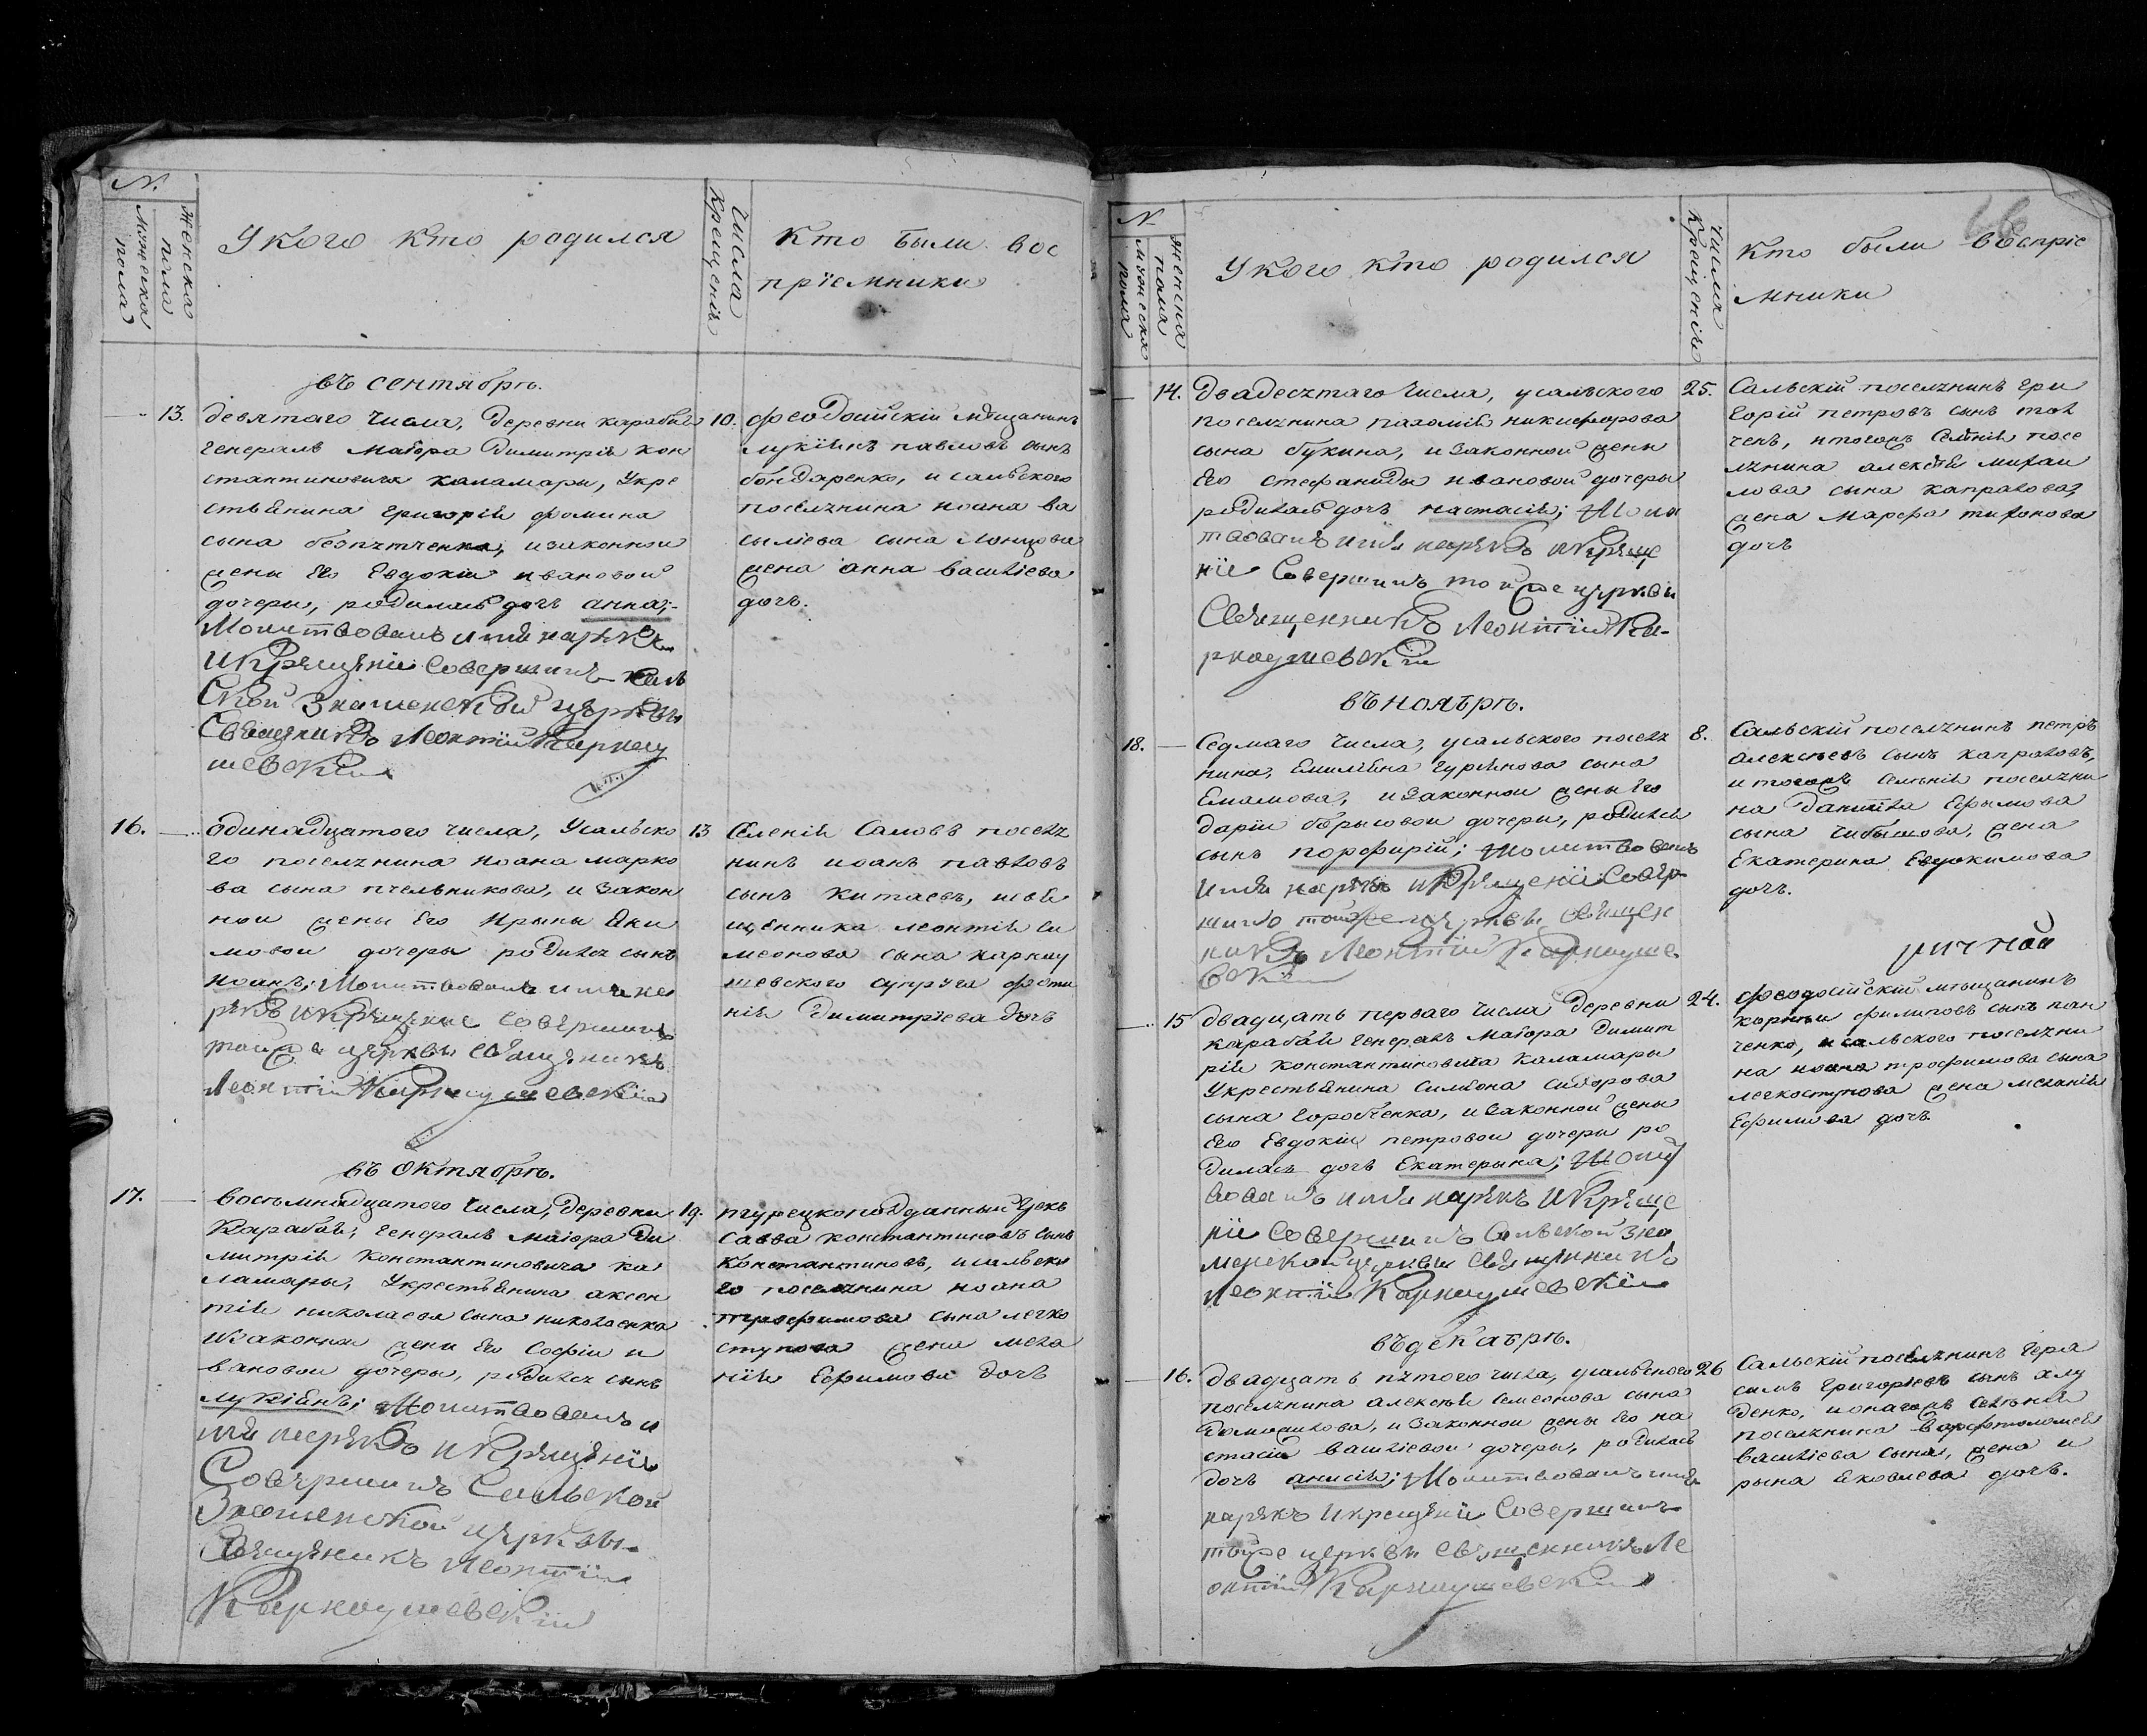 N.
Мужеска пола
Женска пола
У кого кто родился
Числа Крещенія
Кто были вос
пріемники
въ сентябрѣ.
13. девятаго числа, деревни карабай
генералъ маіора димитрія кон
стантиновича каламары, У кре
стьянина григорія фомина
сына безпятченка, и законнои
жены его Евдокіи ивановой
дочеры, родилась дочь анна;
Молитвовалъ имя нарѣкъ
и Крещеніе Совершилъ саль
ской Знаменской церкви
Священикъ Леонтій Карнау
шевскій
10. феодосійскій мѣщанинъ
лукіянъ павловъ сынъ
бондаренко, и сальского
поселянина иоана ва
сыліева сына
жена анна василіева
дочь.
16. одинадцатого числа, У сальско
го поселянина иоана марко
ва сына пчельникова, и закон
нои жены его Ирыны Яки
мовои дочеры родился сынъ
иоанъ; Молитвовалъ имя на
рѣкъ и Крещеніе совершилъ
тойже церкви священикъ
Леонтій Карнаушевскій
13 Селенія Саловъ поселя
нинъ иоанъ павловъ
сынъ китаевъ, и свя
щенника леонтія си
меонова сына карнау
шевского супруга фоти
нія Димитріева дочь
въ октябрѣ.
17. восемнадцатого числа, деревни
Карабай, генералъ маіора Ди
митрія Константиновича ка
ламары, У крестьянина аксен
тія николаева сына николаенка
и законнои жены его Софіи и
вановои дочеры, родился сынъ
лукіянъ; Молитвовалъ и
мя нарѣкъ и Крещеніе
Совершилъ Сальской
Знаменской церкви
Священикъ Леонтій
Карнаушевскій
19. турецкоподданный грекъ
Савва константиновъ сынъ
Константиновъ, и сальско
го поселянина иоана
трофимова сына легко
ступова жена мела
нія Ефимова дочь
N.
Мужеска пола
Женска пола
У кого кто родился
Числа Крещенія
Кто были воспріе
мники
14. Двадесятаго числа, у сальского
поселянина пахомія никифорова
сына букина, и законной жены
его стефаниды ивановой дочеры
родилась дочь настасія; Моли
твовалъ имя нарѣкъ и Креще
ніе Совершилъ тойже церкви
Священникъ Леонтій Ка-
рнаушевскій
25. Сальскій поселянинъ гри
горій петровъ сынъ
ченъ, и тогожъ Селенія посе
лянина алексѣя михаи
лова сына капралова,
жена Марфа тихонова
дочь
въ ноябрѣ.
18. Седмаго числа, у сальского поселя
нина, Емиліяна гуріянова сына
Емамова, и законнои жены его
даріи борысовои дочеры, родился
сынъ порфирій; Молитвовалъ
имя нарѣкъ и Крещеніе Совер
шилъ тойже церкви священ
никъ Леонтій Карнауше
вскій
8. Сальскій поселянинъ петръ
алексѣевъ сынъ капраловъ,
и тогожъ селенія поселяни
на даниила Ефымова
сына чибышова, жена
Екатерина Евдокимова
дочь.
15 двадцать перваго числа деревни
карабай генералъ маіора димит
рія константиновича каламары
У крестьянина симеона сидорова
сына горобченка, и законной жены
его Евдокіи петровои дочеры ро
дилась дочь Екатерына; Молит
вовалъ имя нарѣкъ и Креще
ніе Совершилъ Сальской Зна
менской церкви священникъ
Леонтій Карнаушевскій
24. феодосійскій мѣщанинъ
корнѣй филиповъ сынъ пан
ченко, и сальского поселяни
на иоана трофимова сына
легкоступова жена меланія
Ефимова дочь
въ декабрѣ.
16. двадцать пятого числа, у сальского
поселянина алексѣя семеонова сына
домошкова, и законнои жены его на
стасіи василіевои дочеры, родилась
дочь анисія; Молитвовалъ имя
нарѣкъ и крещеніе Совершилъ
тойже церкви священникъ Ле
онтій Карнаушевскій
26 Сальскій поселянинъ гера
симъ григорьевъ сынъ хлу
денко, и тогожъ селенія
поселянина варфоломея
василіева сына, жена и
рына яковлева дочь.